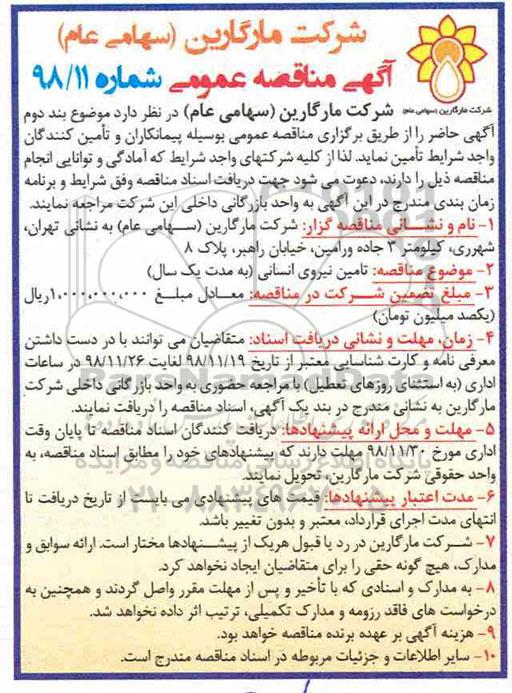 شرکت مارگارین (سهامی عام)
آگهی مناقصه عمومی شماره ۹۸/۱۱
شرکت مارگارین (سهامی عام)
شرکت مارگارین (سهامی عام) در نظر دارد موضوع بند دوم
آگهی حاضر را از طریق برگزاری مناقصه عمومی بوسیله پیمانکاران و تأمین کنندگان
واجد شرایط تأمین نماید. لذا از کلیه شرکتهای واجد شرایط که آمادگی و توانایی انجام
مناقصه ذیل را دارند، دعوت می شود جهت دریافت اسناد مناقصه وفق شرایط و برنامه
زمان بندی مندرج در این آگهی به واحد بازرگانی داخلی این شرکت مراجعه نمایند.
۱- نام و نشانی مناقصه گزار: شرکت مارگارین (سهامی عام) به نشانی تهران،
شهرری، کیلومتر ۳ جاده ورامین، خیابان راهبر، پلاک ۸
۲- موضوع مناقصه: تامین نیروی انسانی (به مدت یک سال)
۳- مبلغ تضمین شرکت در مناقصه: معادل مبلغ ۱,۰۰۰,۰۰۰,۰۰۰ ریال
(یکصد میلیون تومان)
۴- زمان، مهلت و نشانی دریافت اسناد: متقاضیان می توانند با در دست داشتن
معرفی نامه و کارت شناسایی معتبر از تاریخ ۹۸/۱۱/۱۹ لغایت ۹۸/۱۱/۲۶ در ساعات
اداری (به استثنای روزهای تعطیل) با مراجعه حضوری به واحد بازرگانی داخلی شرکت
مارگارین به نشانی مندرج در بند یک آگهی، اسناد مناقصه را دریافت نمایند.
۵- مهلت و محل ارائه پیشنهادها: دریافت کنندگان اسناد مناقصه تا پایان وقت
اداری مورخ ۹۸/۱۱/۳۰ مهلت دارند که پیشنهادهای خود را مطابق اسناد مناقصه، به
واحد حقوقی شرکت مارگارین، تحویل نمایند.
۶- مدت اعتبار پیشنهادها: قیمت های پیشنهادی می بایست از تاریخ دریافت تا
انتهای مدت اجرای قرارداد، معتبر و بدون تغییر باشد.
۷- شرکت مارگارین در رد یا قبول هریک از پیشنهادها مختار است. ارائه سوابق و
مدارک، هیچ گونه حقی را برای متقاضیان ایجاد نخواهد کرد.
۸- به مدارک و اسنادی که با تأخیر و پس از مهلت مقرر واصل گردند و همچنین به
درخواست های فاقد رزومه و مدارک تکمیلی، ترتیب اثر داده نخواهد شد.
۹- هزینه آگهی بر عهده برنده مناقصه خواهد بود.
۱۰- سایر اطلاعات و جزئیات مربوطه در اسناد مناقصه مندرج است.